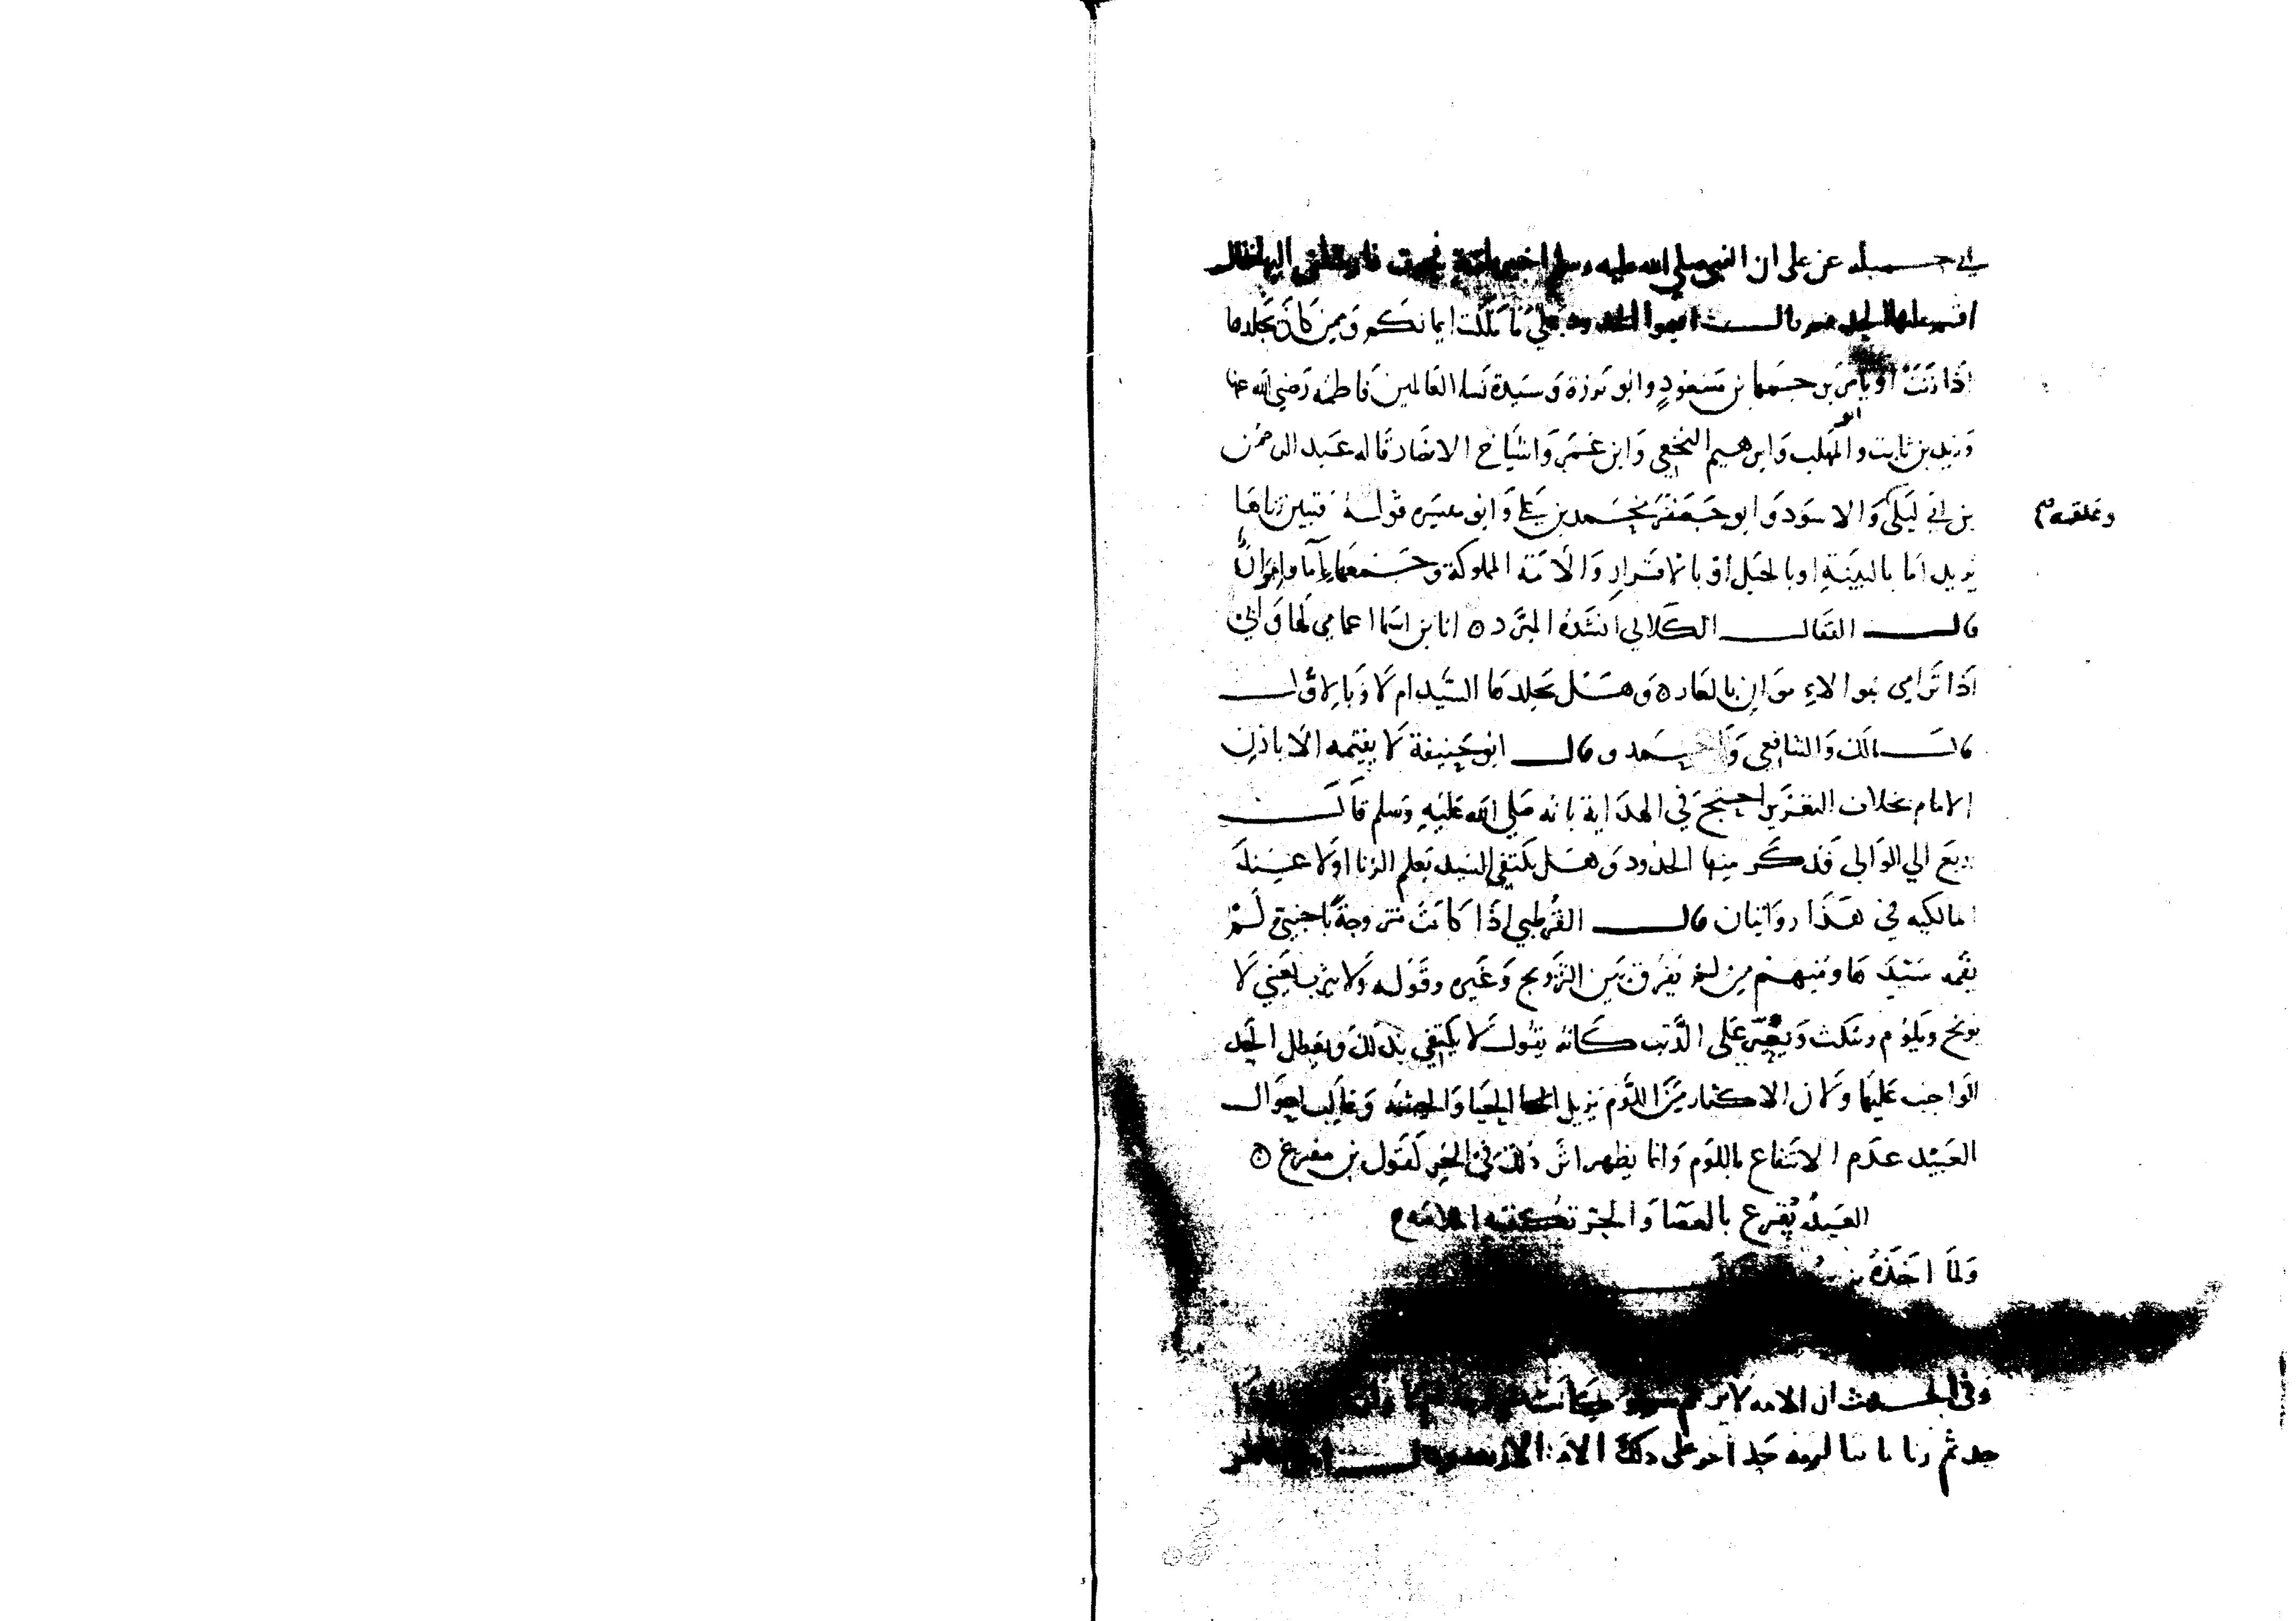 ابي جميله عن علي ان النبي صلي الله عليه وسلم
اقم عليها الحد ثم قال اقيموا الحدود علي ما ملكت ايمانكم وممن كان يجلدها
اذا زنت او يامر بن مسعود وابو برزة وسيدة نسا العالمين فاطمه رضي الله عنها
وزيد بن ثابت وابو المهلب وابرهيم النخعي وابن عمر واشياخ الانصار قاله عبد الرحمن
بن ابي ليلي والاسود وابو جعفر محمد بن علي وابو ميسره قوله فتبين زناها
وعلقمه
يريد اما بالبينة او بالحبل او بالاقرار والامة المملوكة وجمعها اما واموان
قال القتال الكلابي انشده المبرد انا بن اسما اعمامي لها وابي
اذا ترامي بنوا الاء موان بالعار وهل يجلدها السيد ام لا وبالاول
قال مالك والشافعي واحمد وقال ابو حنيفة لا يقيمه الا باذن
الامام بخلاف التعزير احتج في الهداية بانه صلي الله عليه وسلم قال
اربع الي الوالي فذكر منها الحدود وهل يكتفي السيد بعلم الزنا اولا عند
المالكيه في هذا روايتان قال القرطبي اذا كانت متزوجة باجنبي لم
يقمه سيدها ومنهم من لم يفرق بين التزويج وغيره وقوله ولا يثرب يعني لا
يوبخ ويلوم وينكث ويعير علي الذنب كانه يقول لا يكتفي بذلك ويعطل الحد
الواجب عليها ولان الاكثار من اللوم يزيل الحيا والحشمه وغالب احوال
العبيد عدم الانتفاع باللوم وانما يظهر اثر ذلك في الحر لقول بن مفرغ
العبد يقرع بالعصا والحر تكفيه الملامه
ولما اخذه بن
وفي الحديث ان الامه لا ترجم سوا كانت
حد ثم زنا ثانيا لزمه حد اخر علي ذلك الايمة الاربعه